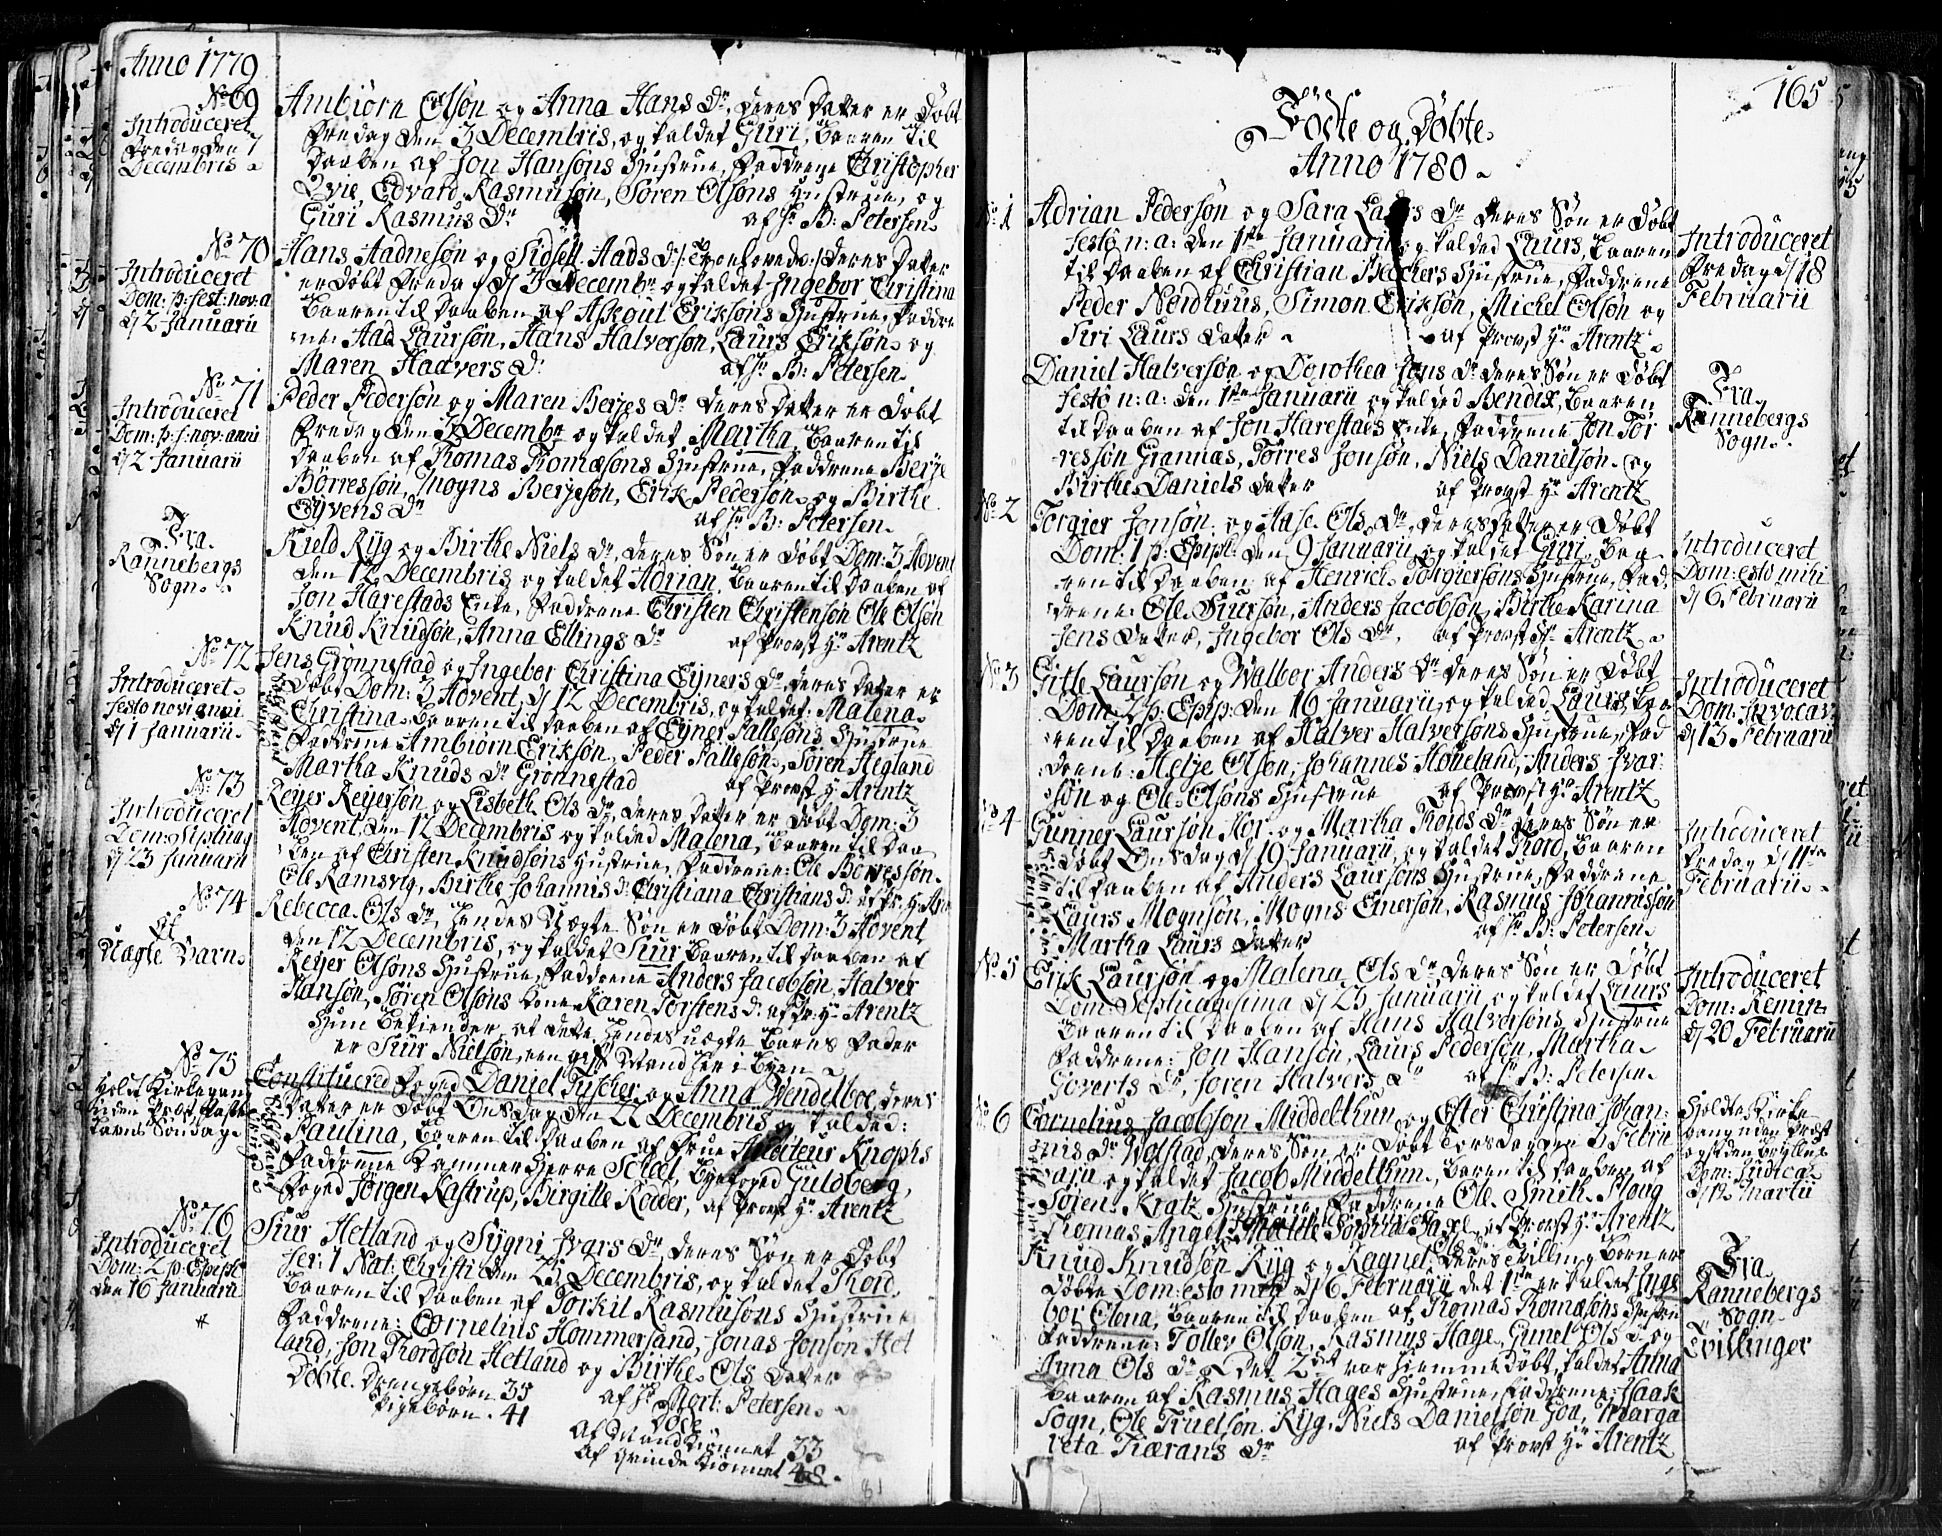 Anno 1779
No 69
Introduceret
Fredag den 7
Decembris
Ambiørn Olsøn og Anna Hans Dr, deres Dater er Døbt
Fredag den 3 Decembris, og kaldet Guri, baaren til
Daaben af Jon Hansøns Hustrue, Faddrene Christopher
Edvard Rasmusøn, Søren Olsøns Hustrue, og
Guri Rasmus Dr af Hr B: Petersen
No 70
Introduceret
Dom: p: fest: nov: a
d/2 Januarii
Hans Aadnesøn og Sidsell Aads Dr /: Trolovede :/ deres Dater
er døbt Fredag d/ 3 Decembr og kaldet Ingebor Christina
baaren til Daaben af Askout Eriksøns Hustrue, Faddre
ne Aad Laursøn, Hans Halversøn, Laurs Eriksøn og
Maren Haavers Dr af Hr B: Petersen
No 71
Introduceret
Dom: p: f: nov: anni
d/2 Januarii
Peder Pedersøn og Maren Berjes Dr deres Dater er døbt
Fredag den 3 Decembr og kaldet Martha, baaren til
Daaben af Thomas Thomæsøns Hustrue, Faddrene Berje
Børresøn, Mogns Berjesøn, Erik Pedersøn og Birthe
Eyvens Dr af Hr B: Petersen
Fra
Rannebergs
Sogn
Kield Ryg og Birthe Niels Dr, deres Søn er døbt Dom: 3 Advent
den 12 Decembris og kaldet Adrian, baaren til Daaben af
Jon Harestads Enke, Faddrene Christen Christensøn Ole Olsøn
Knud Knudsøn, Anna Ellings Dr af Provst Hr Arentz
No 72
Introduceret
Festo novi anni
d/1 Januarii
Jens Grønnestad og Ingebor Christina Ejners Dr, deres Dater er
døbt Dom: 3 Advent, d/ 12 Decembris, og kaldet Malena
Christina, baaren til Daaben af Ejner Pallesøns Hustrue
Faddrene Ambiørn Eriksøn, Peder Pallesøn, Søren Hegland
Martha Knuds Dr Grønnestad af Provst Hr Arentz
No 73
Introduceret
Dom: Septuag
d/23 Januarii
Rejer Rejersøn og Lisbeth Ols Dr, deres Dater er døbt Dom: 3
Advent den 12 Decembris og kaldet Malena, baaren til Daa
ben af Christen Knudsøns Hustrue, Faddrene: Ole Børresøn
Ole Ramsvig, Birthe Johannis Dr Christiana Christians Dr af Pr: Hr Are
No 74
Et
Uægte Barn
Rebecca Ols Dr, hendes Uægte Søn er døbt Dom: 3 Advent
den 12 Decembris, og kaldet Siur baaren til Daaben af
Rejer Olsøns Hustrue, Faddrene Anders Jacobsøn, Halver
Hansøn, Søren Olsøns Kone Karen Torstens Dr af Pr: Hr Arentz
Hun bekiender, at dette hendes uægte Barns Fader
er Siur Nielsøn, een gift Mand her i Byen
No 75
Holdt Kirkegang
uden
Søndag
Constitueret Foged Daniel Fischer og Anna Wendelboe deres
Dater er døbt Onsdag den 22 Decembris og kaldet:
Paulina, baaren til Daaben af Frue Auditeur Knophs
Faddrene Kammerherre Scheel, Byefoged Guldberg,
Foged Jørgen Kastrup, Birgitte Røder, af Provst Hr Arentz
No 76
Introduceret
Dom: 2 p: Epiph
den 16 Januarii
Siur Hetland og Sygni Ivars Dr, deres Søn er døbt
Fer: 1 Nat: Christi den 25 Decembris, og kaldet Thord,
baaren til Daaben af Torkil Rasmusøns Hustrue
Faddrene: Cornelius Hommersand, Jonas Jonsøn Het
land, Jon Thordsøn Hetland og Birthe Ols Dater
af Hr Mort: Petersen
Døbte Drengebørn 35
Pigebørn 41
Døde
Af Mandkiønnet 33
Af Qvindekiønnet 48
81
165
Fødte og Døbte
Anno 1780
No 1
Adrian Pedersøn og Sara Laurs Dr deres Søn er Døbt
Festo n: a: den 1ste Januarii og kaldet Laurs, baaren
til Daaben af Christian Beckers Hustrue, Faddrene
Peder Nordhuus, Simon Eriksøn, Michel Olsøn og
Siri Laurs Dater af Provst Hr Arentz
Introduceret
Fredag d/18
Februarii
Daniel Halversøn og Dorothea Jons Dr deres Søn er døbt
Festo n: a: den 1ste Januarii og kaldet Bendix, baaren
til Daaben af Jon Harestads Enke, Faddrene Jon Tør
resøn Grannæs, Tørres Jonsøn, Niels Danielsøn og
Birthe Daniels Dater af Provst Hr Arentz
Fra
Rannebergs
Sogn
No 2
Torgier Jonsøn og Aase Ols Dr, deres Dater er Døbt
Dom: 1 p: Epiph: den 9 Januarii og kaldet Guri, baa
ren til Daaben af Henrich Torgiersøns Hustrue, Fad
drene Ole Siursøn, Anders Jacobsøn, Birthe Karina
Jens Dater, Ingebor Ols Dr, af Provst Hr Arentz
Introduceret
Dom: esto mihi
d/6 Februarii
No 3
Gitle Laursøn og Walbor Anders Dr deres Søn er Døbt
Dom: 2 p: Epip: den 16 Januarii og kaldet Laurs, baa
ren til Daaben af Halver Halversøns Hustrue, Fad
drene: Helje Olsøn, Johannes Høieland, Anders Ivar
søn og Ole Olsøns Hustrue af Provst Hr Arentz
Introduceret
Dom: Invocav
d/13 Februarii
No 4
Gunner Laursøn Hør og Martha Thords Dr deres Søn er
døbt Onsdag d/ 19 Januarii, og kaldet Thord, baaren
til Daaben af Anders Laursøns Hustrue, Faddrene
Laurs Mognsøn, Mogns Einersøn, Rasmus Johannissøn
Martha Laurs Dater af Hr B: Petersen
Introduceret
Fredag d/11te
Februarii
No 5
Erik Laursøn og Malena Ols Dr deres Søn er Døbt
Dom: Septuagesima d/ 23 Januarii og kaldet Laurs
baaren til Daaben af Hans Halversøns Hustrue
Faddrene: Jon Hansøn, Laurs Pedersøn, Martha
Goverts Dr, Joren Halvers Dr af Hr B: Petersen
Introduceret
Dom: Remin
d/20 Februarii
No 6
Cornelius Jacobsøn Middelthun og Ester Christina Johan
nis Dr Wolstad, deres Søn er døbt Torsdag den 3 Febru
arii og kaldet Jacob Middelthun, baaren til Daaben af
Søren Kratz Hustrue, Faddrene Ole Smith Ploug
Thomas Angel, Mallle Sophia Gaxel af Provst Hr Arentz
Holdte Kirke
gang uden Præst
Dom: Judica
d/12 Martii
Knud Knudsøn Ryg og Ragnel Ols Dr deres Tvilling Børn er
døbte Dom: esto mihi d/6 Februarii det 1ste er kaldet Inge
bor Olena, baaren til Daaben af Thomas Thomæsøns Hustrue
Faddrene: Tollev Olsøn, Rasmus Hage, Gunel Ols Dr og
Anna Ols Dr Det 2det var hiemme døbt, kaldet Anna
baaren af Rasmus Hages Hustrue, Faddrene: Haak
Sogn, Ole Truelsøn Ryg, Niels Danielsøn Goa, Marga
reta Tiærans Dr af Provst Hr Arentz
Fra
Rannebergs
Sogn
Tvillinger